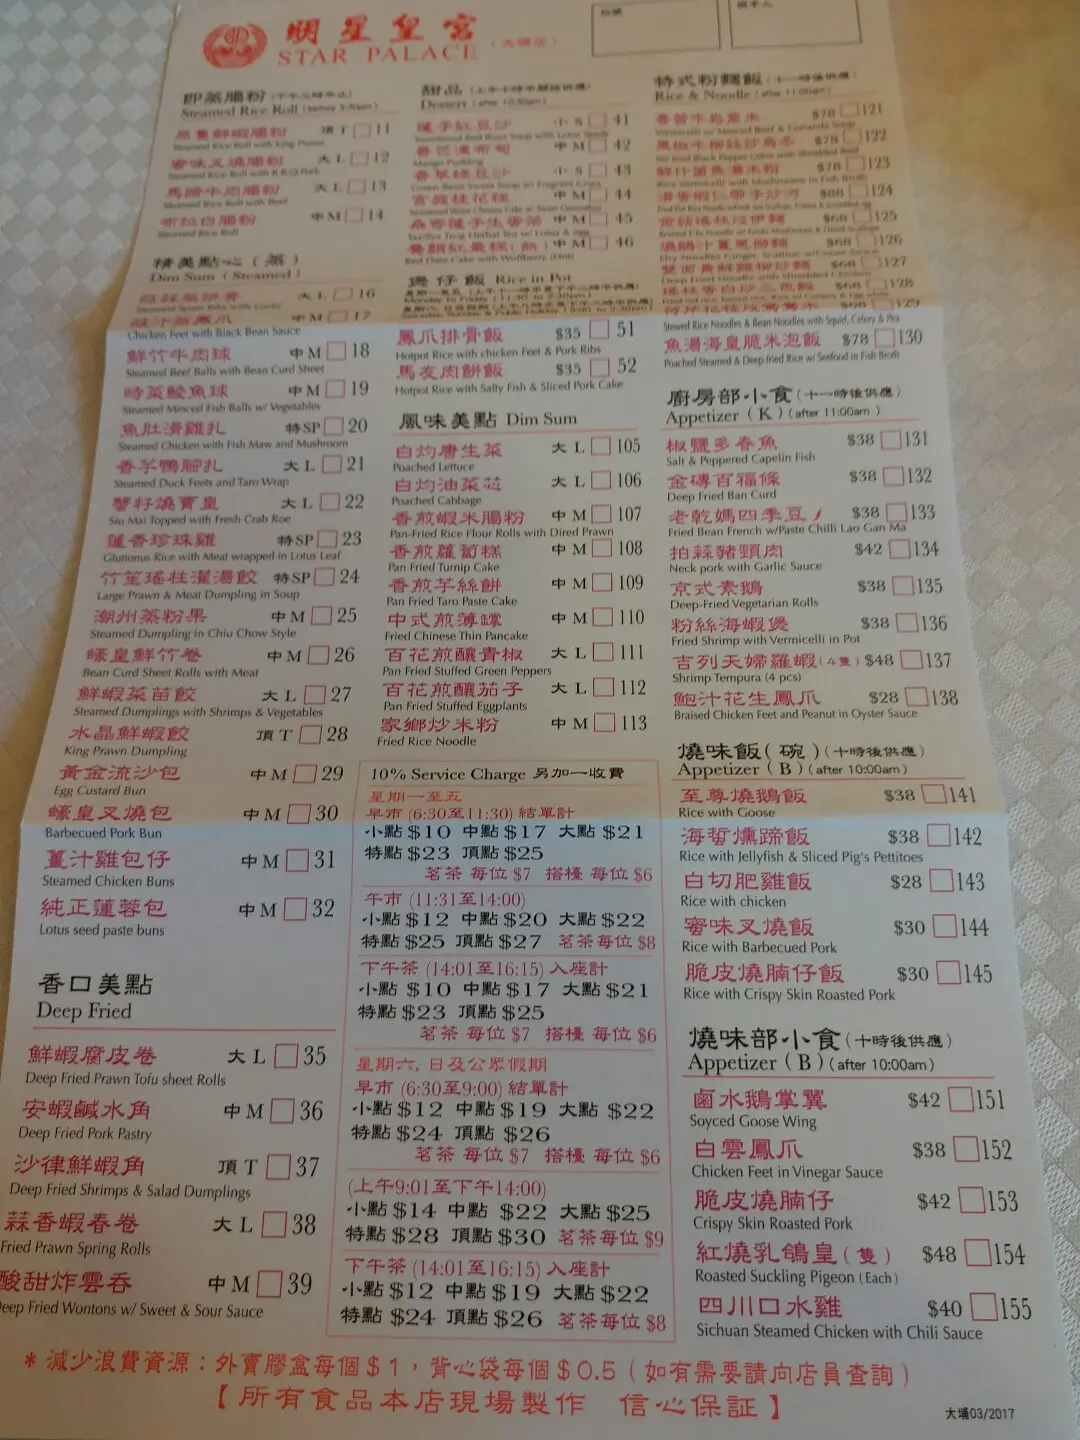 明星皇宮 (大埔店)
STAR PALACE
即蒸腸粉 (下午三時半止)
Steamed Rice Roll (before 3:30pm)
原隻鮮蝦腸粉 頂 T 11
Steamed Rice Roll with King Prawn
蜜味叉燒腸粉 大 L 12
Steamed Rice Roll with B.B.Q Pork
馬蹄牛肉腸粉 大 L 13
Steamed Rice Roll with Beef
布拉白腸粉 中 M 14
Steamed Rice Roll
精美點心 (蒸)
Dim Sum (Steamed)
大 L 16
中 M 17
Chicken Feet with Black Bean Sauce
鮮竹牛肉球 中 M 18
Steamed Beef Balls with Bean Curd Sheet
時菜鯪魚球 中 M 19
Steamed Minced Fish Balls w/ Vegetables
魚肚滑雞扎 特SP 20
Steamed Chicken with Fish Maw and Mushroom
香芋鴨腳扎 大 L 21
Steamed Duck Feets and Taro Wrap
蟹籽燒賣皇 大 L 22
Siu Mai Topped with Fresh Crab Roe
蓮香珍珠雞 特SP 23
Glutionus Rice with Meat wrapped in Lotus Leaf
竹笙瑤柱灌湯餃 特SP 24
Large Prawn & Meat Dumpling in Soup
潮州蒸粉果 中 M 25
Steamed Dumpling in Chiu Chow Style
蠔皇鮮竹卷 中 M 26
Bean Curd Sheet Rolls with Meat
鮮蝦菜苗餃 大 L 27
Steamed Dumplings with Shrimps & Vegetables
水晶鮮蝦餃 頂 T 28
King Prawn Dumpling
黃金流沙包 中 M 29
Egg Custard Bun
蠔皇叉燒包 中 M 30
Barbecued Pork Bun
薑汁雞包仔 中 M 31
Steamed Chicken Buns
純正蓮蓉包 中 M 32
Lotus seed paste buns
香口美點
Deep Fried
鮮蝦腐皮卷 大 L 35
Deep Fried Prawn Tofu sheet Rolls
安蝦鹹水角 中 M 36
Deep Fried Pork Pastry
沙律鮮蝦角 頂 T 37
Deep Fried Shrimps & Salad Dumplings
蒜香蝦春卷 大 L 38
Fried Prawn Spring Rolls
酸甜炸雲吞 中 M 39
Deep Fried Wontons w/ Sweet & Sour Sauce
甜品 (上午十時半開始供應)
Dessert (after 10:30am)
蓮子紅豆沙 小 S 41
香芒凍布甸 中 M 42
Mango Pudding
香草綠豆沙 小 S 43
宮廷桂花糕 中 M 44
桑寄蓮子生蛋茶 中 M 45
中 M 46
Red Date Cake with Wolfberry (Hot)
煲仔飯 Rice in Pot
Monday to Friday (11:30 to 2:30pm)
鳳爪排骨飯 $35 51
Hotpot Rice with chicken Feet & Pork Ribs
馬友肉餅飯 $35 52
Hotpot Rice with Salty Fish & Sliced Pork Cake
風味美點 Dim Sum
白灼唐生菜 大 L 105
Poached Lettuce
白灼油菜芯 大 L 106
Poached Cabbage
香煎蝦米腸粉 中 M 107
Pan-Fried Rice Flour Rolls with Dired Prawn
香煎蘿蔔糕 中 M 108
Pan Fried Turnip Cake
香煎芋絲餅 中 M 109
Pan Fried Taro Paste Cake
中式煎薄罉 中 M 110
Fried Chinese Thin Pancake
百花煎釀青椒 大 L 111
Pan Fried Stuffed Green Peppers
百花煎釀茄子 大 L 112
Pan Fried Stuffed Eggplants
家鄉炒米粉 中 M 113
Fried Rice Noodle
10% Service Charge 另加一收費
星期一至五
早市 (6:30至11:30) 結單計
小點 $10 中點 $17 大點 $21
特點 $23 頂點 $25
茗茶 每位 $7 搭檯 每位 $6
午市 (11:31至14:00)
小點 $12 中點 $20 大點 $22
特點 $25 頂點 $27 茗茶每位 $8
下午茶 (14:01至16:15) 入座計
小點 $10 中點 $17 大點 $21
特點 $23 頂點 $25
茗茶 每位 $7 搭檯 每位 $6
星期六, 日及公眾假期
早市 (6:30至9:00) 結單計
小點 $12 中點 $19 大點 $22
特點 $24 頂點 $26
茗茶 每位 $7 搭檯 每位 $6
(上午9:01至下午14:00)
小點 $14 中點 $22 大點 $25
特點 $28 頂點 $30 茗茶每位 $9
下午茶 (14:01至16:15) 入座計
小點 $12 中點 $19 大點 $22
特點 $24 頂點 $26 茗茶每位 $8
特式粉麵飯 (十一時後供應)
Rice & Noodle (after 11:00am)
$78 121
$78 122
$78 123
$88 124
$68 125
$68 126
$68 127
$68 128
129
Stewed Rice Noodles & Bean Noodles with Squid, Celery & Pea
魚湯海皇脆米泡飯 $78 130
Poached Steamed & Deep-fried Rice w/ Seefood in Fish Broth
廚房部小食 (十一時後供應)
Appetizer ( K ) (after 11:00am)
椒鹽多春魚 $38 131
Salt & Peppered Capelin Fish
金磚百福條 $38 132
Deep Fried Ban Curd
老乾媽四季豆 $38 133
Fried Bean French w/Paste Chilli Lao Gan Ma
拍蒜豬頸肉 $42 134
Neck pork with Garlic Sauce
京式素鵝 $38 135
Deep-Fried Vegetarian Rolls
粉絲海蝦煲 $38 136
Fried Shrimp with Vermicelli in Pot
吉列天婦羅蝦 (4隻) $48 137
Shrimp Tempura (4 pcs)
鮑汁花生鳳爪 $28 138
Braised Chicken Feet and Peanut in Oyster Sauce
燒味飯 ( 碗 ) (十時後供應)
Appetizer ( B ) (after 10:00am)
至尊燒鵝飯 $38 141
Rice with Goose
海蜇燻蹄飯 $38 142
Rice with Jellyfish & Sliced Pig's Pettitoes
白切肥雞飯 $28 143
Rice with chicken
蜜味叉燒飯 $30 144
Rice with Barbecued Pork
脆皮燒腩仔飯 $30 145
Rice with Crispy Skin Roasted Pork
燒味部小食 (十時後供應)
Appetizer ( B ) (after 10:00am)
鹵水鵝掌翼 $42 151
Soyced Goose Wing
白雲鳳爪 $38 152
Chicken Feet in Vinegar Sauce
脆皮燒腩仔 $42 153
Crispy Skin Roasted Pork
紅燒乳鴿皇 ( 隻 ) $48 154
Roasted Suckling Pigeon (Each)
四川口水雞 $40 155
Sichuan Steamed Chicken with Chili Sauce
* 減少浪費資源：外賣膠盒每個 $ 1，背心袋每個 $ 0.5 ( 如有需要請向店員查詢 )
【 所有食品本店現場製作 信心保証 】
大埔03/2017